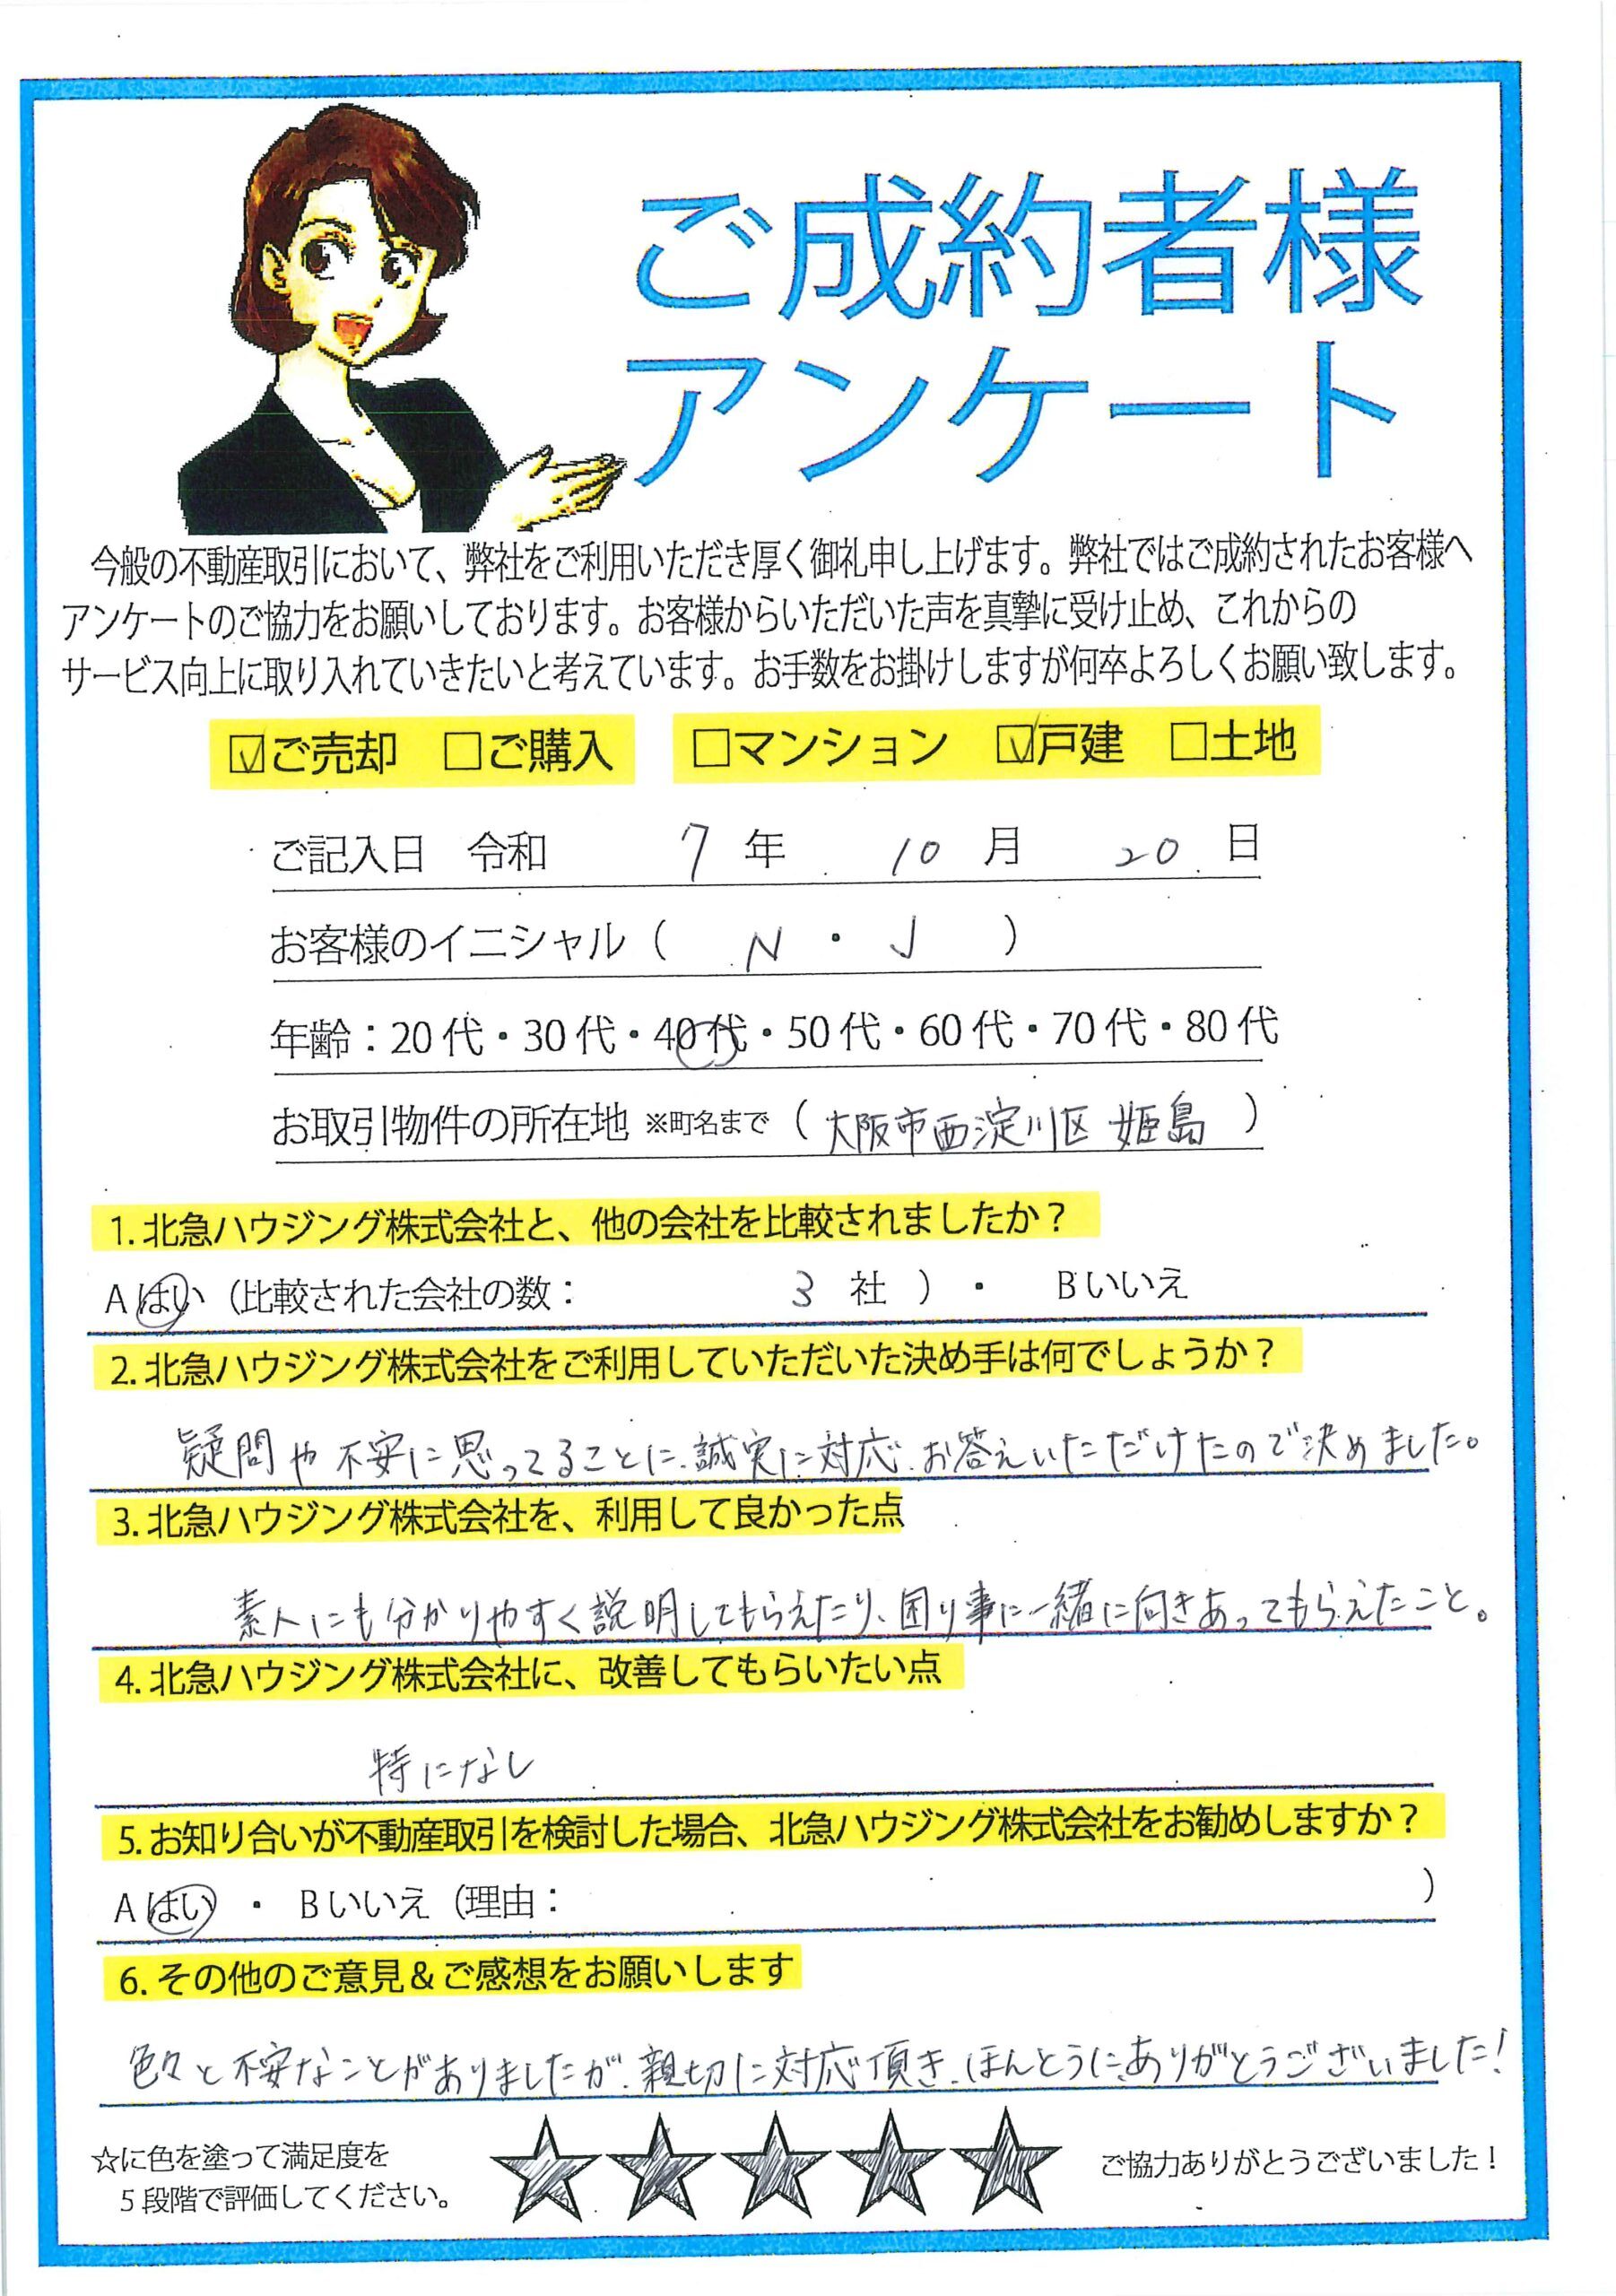 ご成約者様
アンケート
今般の不動産取引において、弊社をご利用いただき厚く御礼申し上げます。弊社ではご成約されたお客様へ
アンケートのご協力をお願いしております。お客様からいただいた声を真摯に受け止め、これからの
サービス向上に取り入れていきたいと考えています。お手数をお掛けしますが何卒よろしくお願い致します。
☑ご売却 □ご購入 □マンション ☑戸建 □土地
ご記入日 令和 7 年 10 月 20 日
お客様のイニシャル（ N ・ J ）
年齢：20代・30代・40代・50代・60代・70代・80代
お取引物件の所在地 ※町名まで（大阪市西淀川区 姫島）
1. 北急ハウジング株式会社と、他の会社を比較されましたか？
A はい（比較された会社の数： 3 社 ）・ B いいえ
2. 北急ハウジング株式会社をご利用していただいた決め手は何でしょうか？
疑問や不安に思ってることに、誠実に対応、お答えいただけたので決めました。
3. 北急ハウジング株式会社を、利用して良かった点
素人にも分かりやすく説明してもらえたり、困り事に一緒に向きあってもらえたこと。
4. 北急ハウジング株式会社に、改善してもらいたい点
特になし
5. お知り合いが不動産取引を検討した場合、北急ハウジング株式会社をお勧めしますか？
A はい ・ B いいえ（理由： ）
6. その他のご意見＆ご感想をお願いします
色々と不安なことがありましたが、親切に対応頂き、ほんとうにありがとうございました！
☆に色を塗って満足度を
5段階で評価してください。
★★★★★
ご協力ありがとうございました！